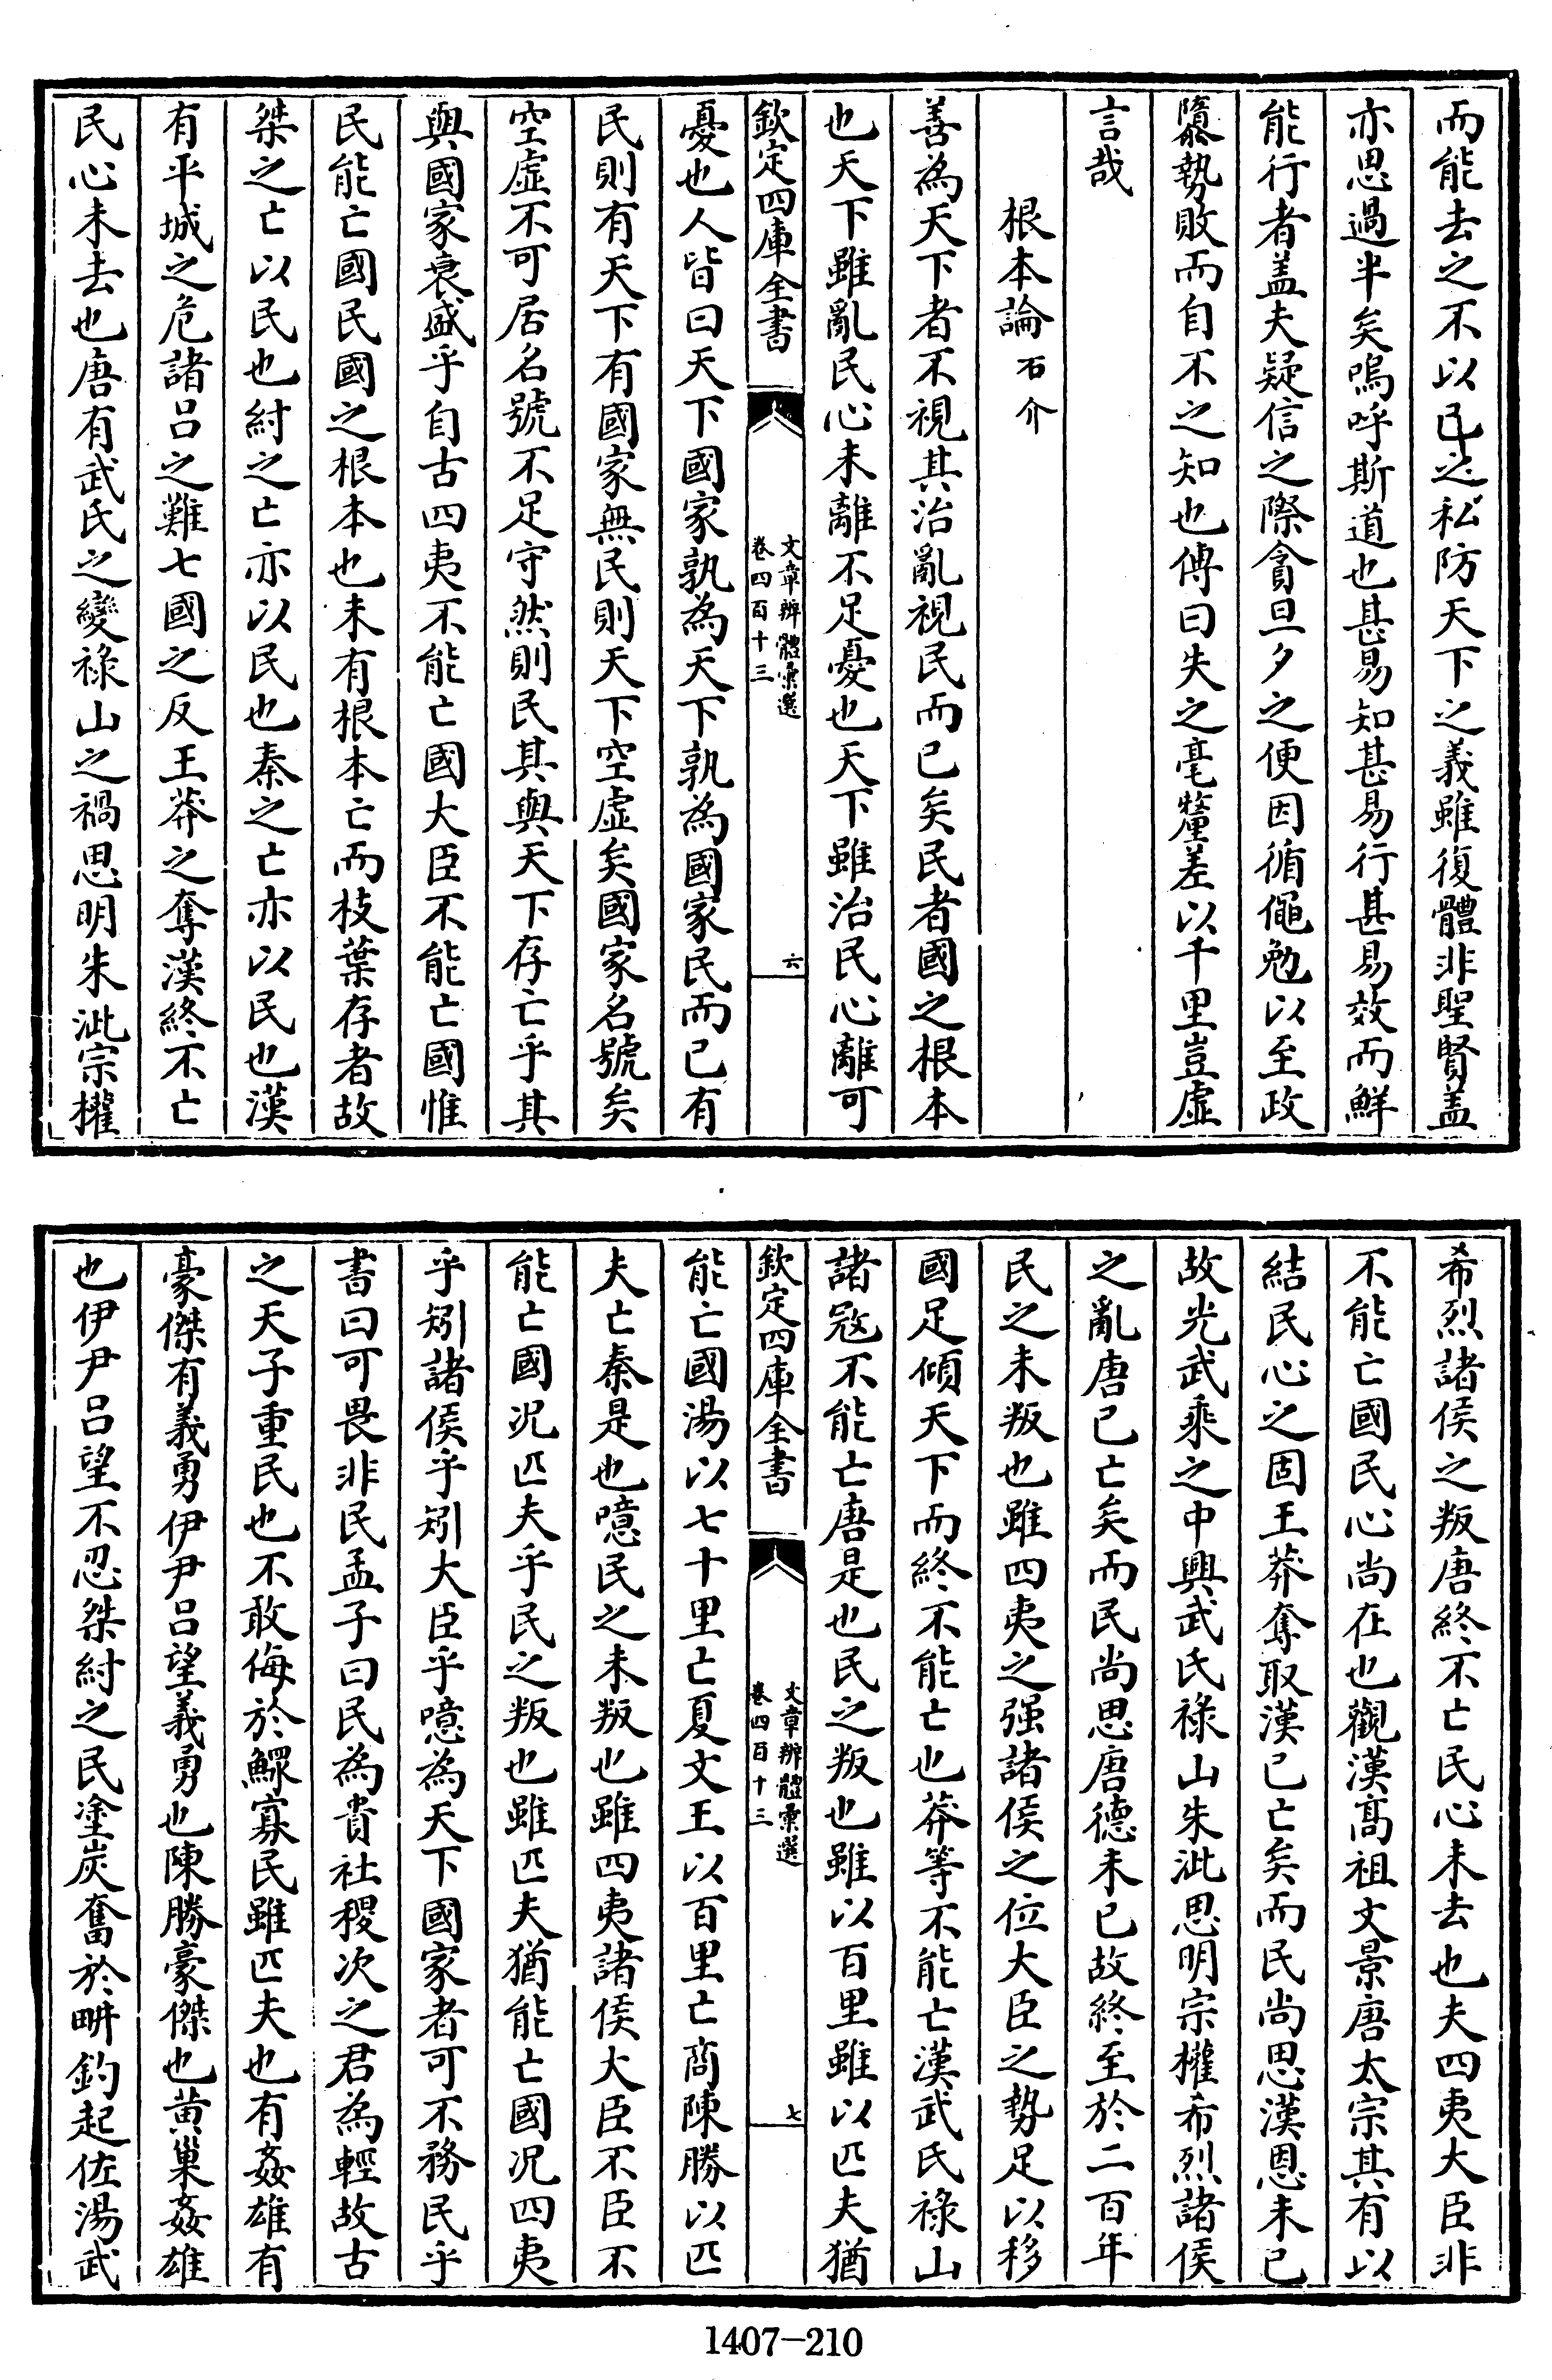 而能去之不以己之私防天下之義雖復體非聖賢盖
亦思過半矣嗚呼斯道也甚易知甚易行甚易效而鮮
能行者盖夫疑信之際貪旦夕之便因循僶勉以至政
隳勢敗而自不之知也傳曰失之毫釐差以千里豈虛
言哉
根本論 石介
善為天下者不視其治亂視民而已矣民者國之根本
也天下雖亂民心未離不足憂也天下雖治民心離可
欽定四庫全書
文章辨體彙選
卷四百十三
六
憂也人皆曰天下國家孰為天下孰為國家民而已有
民則有天下有國家無民則天下空虛矣國家名號矣
空虛不可居名號不足守然則民其與天下存亡乎其
與國家衰盛乎自古四夷不能亡國大臣不能亡國惟
民能亡國民國之根本也未有根本亡而枝葉存者故
桀之亡以民也紂之亡亦以民也秦之亡亦以民也漢
有平城之危諸呂之難七國之反王莽之奪漢終不亡
民心未去也唐有武氏之變祿山之禍思明朱泚宗權
希烈諸侯之叛唐終不亡民心未去也夫四夷大臣非
不能亡國民心尚在也觀漢髙祖文景唐太宗其有以
結民心之固王莽奪取漢已亡矣而民尚思漢恩未已
故光武乘之中興武氏祿山朱泚思明宗權希烈諸侯
之亂唐已亡矣而民尚思唐德未已故終至於二百年
民之未叛也雖四夷之强諸侯之位大臣之勢足以移
國足傾天下而終不能亡也莽等不能亡漢武氏祿山
諸冦不能亡唐是也民之叛也雖以百里雖以匹夫猶
欽定四庫全書
文章辨體彙選
卷四百十三
七
能亡國湯以七十里亡夏文王以百里亡商陳勝以匹
夫亡秦是也噫民之未叛也雖四夷諸侯大臣不臣不
能亡國况匹夫乎民之叛也雖匹夫猶能亡國况四夷
乎矧諸侯乎矧大臣乎噫為天下國家者可不務民乎
書曰可畏非民孟子曰民為貴社稷次之君為輕故古
之天子重民也不敢侮於鰥寡民雖匹夫也有姦雄有
豪傑有義勇伊尹呂望義勇也陳勝豪傑也黄巢姦雄
也伊尹呂望不忍桀紂之民塗炭奮於畊釣起佐湯武
1407-210